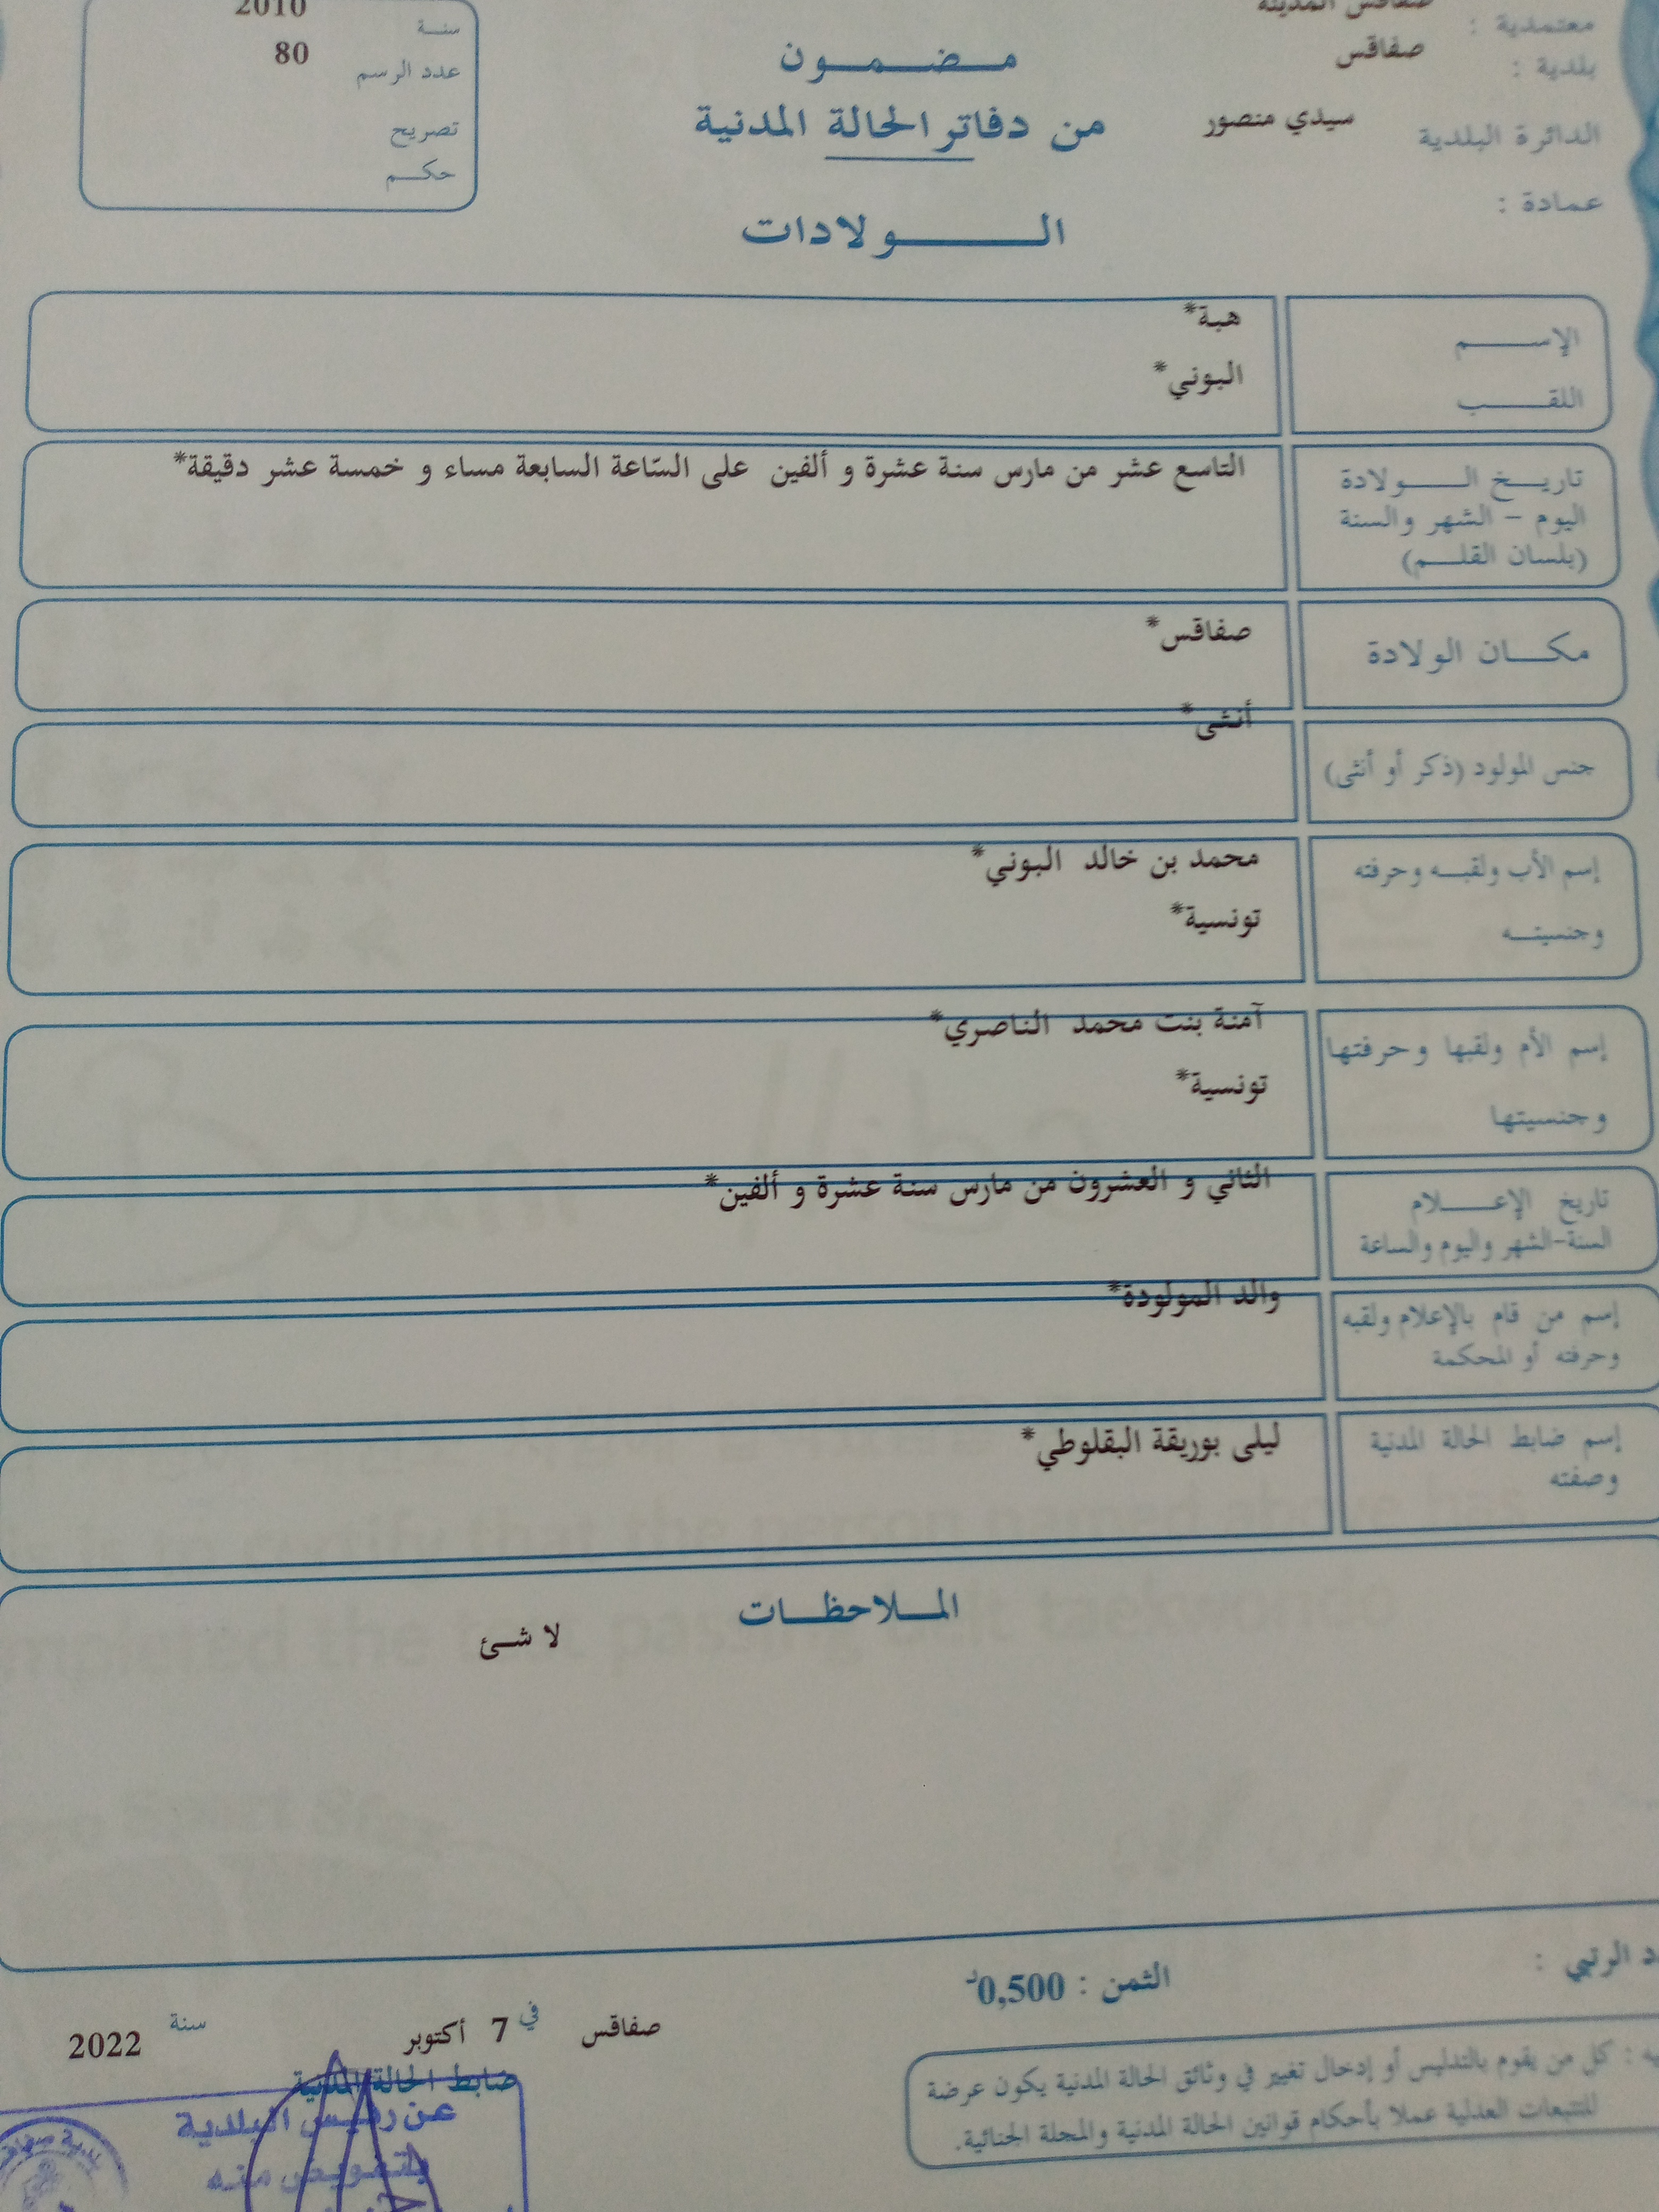 صفاقس المدينة
معتمدية :
صفاقس
بلدية :
سيدي منصور
الدائرة البلدية
عمادة :
مضمون
من دفاتر الحالة المدنية
الولادات
2010
سنة
80
عدد الرسم
تصريح
حكم
الإسم
هبة*
اللقب
البوني*
تاريخ الولادة
اليوم - الشهر والسنة
(بلسان القلم)
التاسع عشر من مارس سنة عشرة و ألفين على السّاعة السابعة مساء و خمسة عشر دقيقة*
مكان الولادة
صفاقس*
جنس المولود (ذكر أو أنثى)
أنثى*
إسم الأب ولقبه وحرفته
وجنسيته
محمد بن خالد البوني*
تونسية*
إسم الأم ولقبها وحرفتها
وجنسيتها
آمنة بنت محمد الناصري*
تونسية*
تاريخ الإعلام
السنة-الشهر واليوم والساعة
الثاني و العشرون من مارس سنة عشرة و ألفين*
إسم من قام بالإعلام ولقبه
وحرفته أو المحكمة
والد المولودة*
إسم ضابط الحالة المدنية
وصفته
ليلى بوريقة البقلوطي*
الملاحظات
لا شئ
الرتبي :
الثمن : 0,500د
صفاقس في 7 أكتوبر سنة 2022
ضابط الحالة المدنية
عن رئيس البلدية
بتفويض منه
كل من يقوم بالتدليس أو إدخال تغيير في وثائق الحالة المدنية يكون عرضة
للتتبعات العدلية عملا بأحكام قوانين الحالة المدنية والمجلة الجنائية.